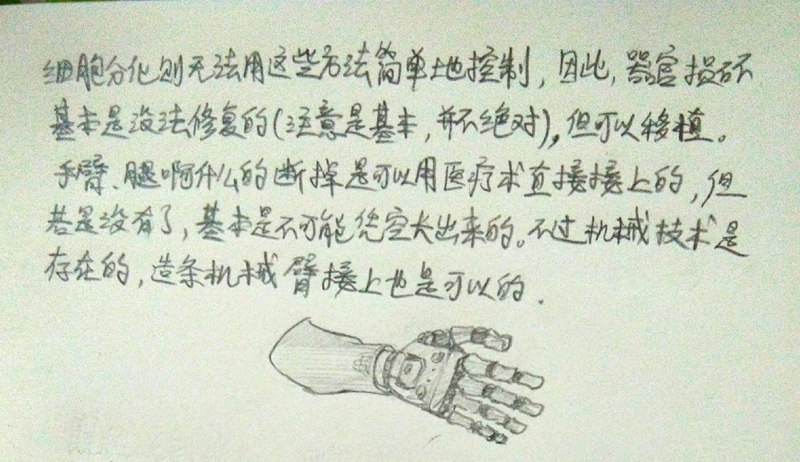 细胞分化则无法用这些方法简单地控制，因此，器官损坏
基本是没法修复的（注意是基本，并不绝对），但可以移植。
手臂、腿啊什么的断掉是可以用医疗术直接接上的，但
若是没有了，基本是不可能凭空长出来的。不过机械技术是
存在的，造条机械臂接上也是可以的．